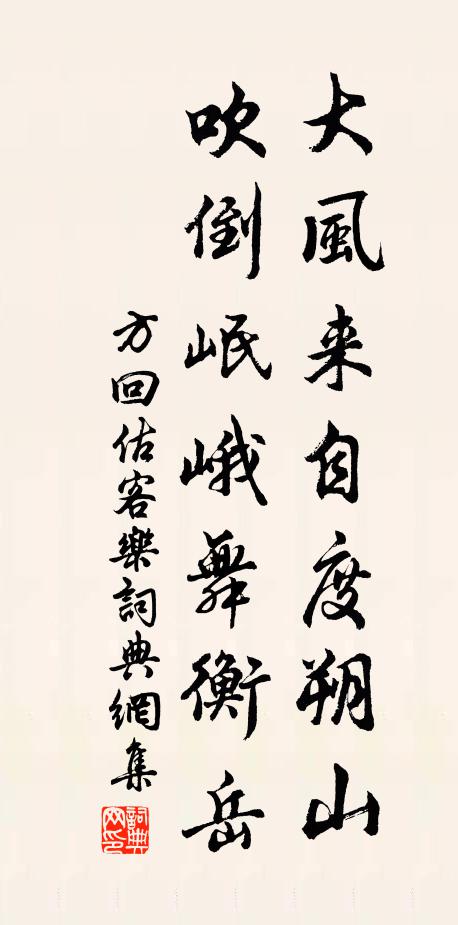 大風来自度朔山
吹倒岷峨舞衡岳
方回估客樂詞典網集
詞典网印